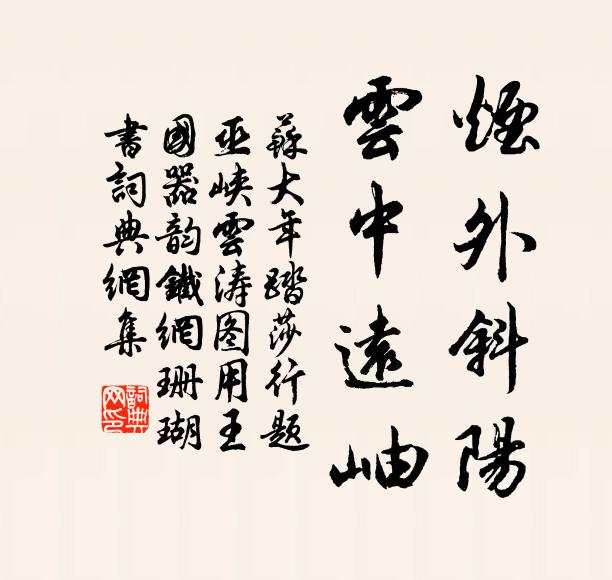 煙外斜陽
雲中遠岫
蘇大年踏莎行題
巫峽雲濤图用王
國器韵鐵網珊瑚
書詞典網集
詞典
网印